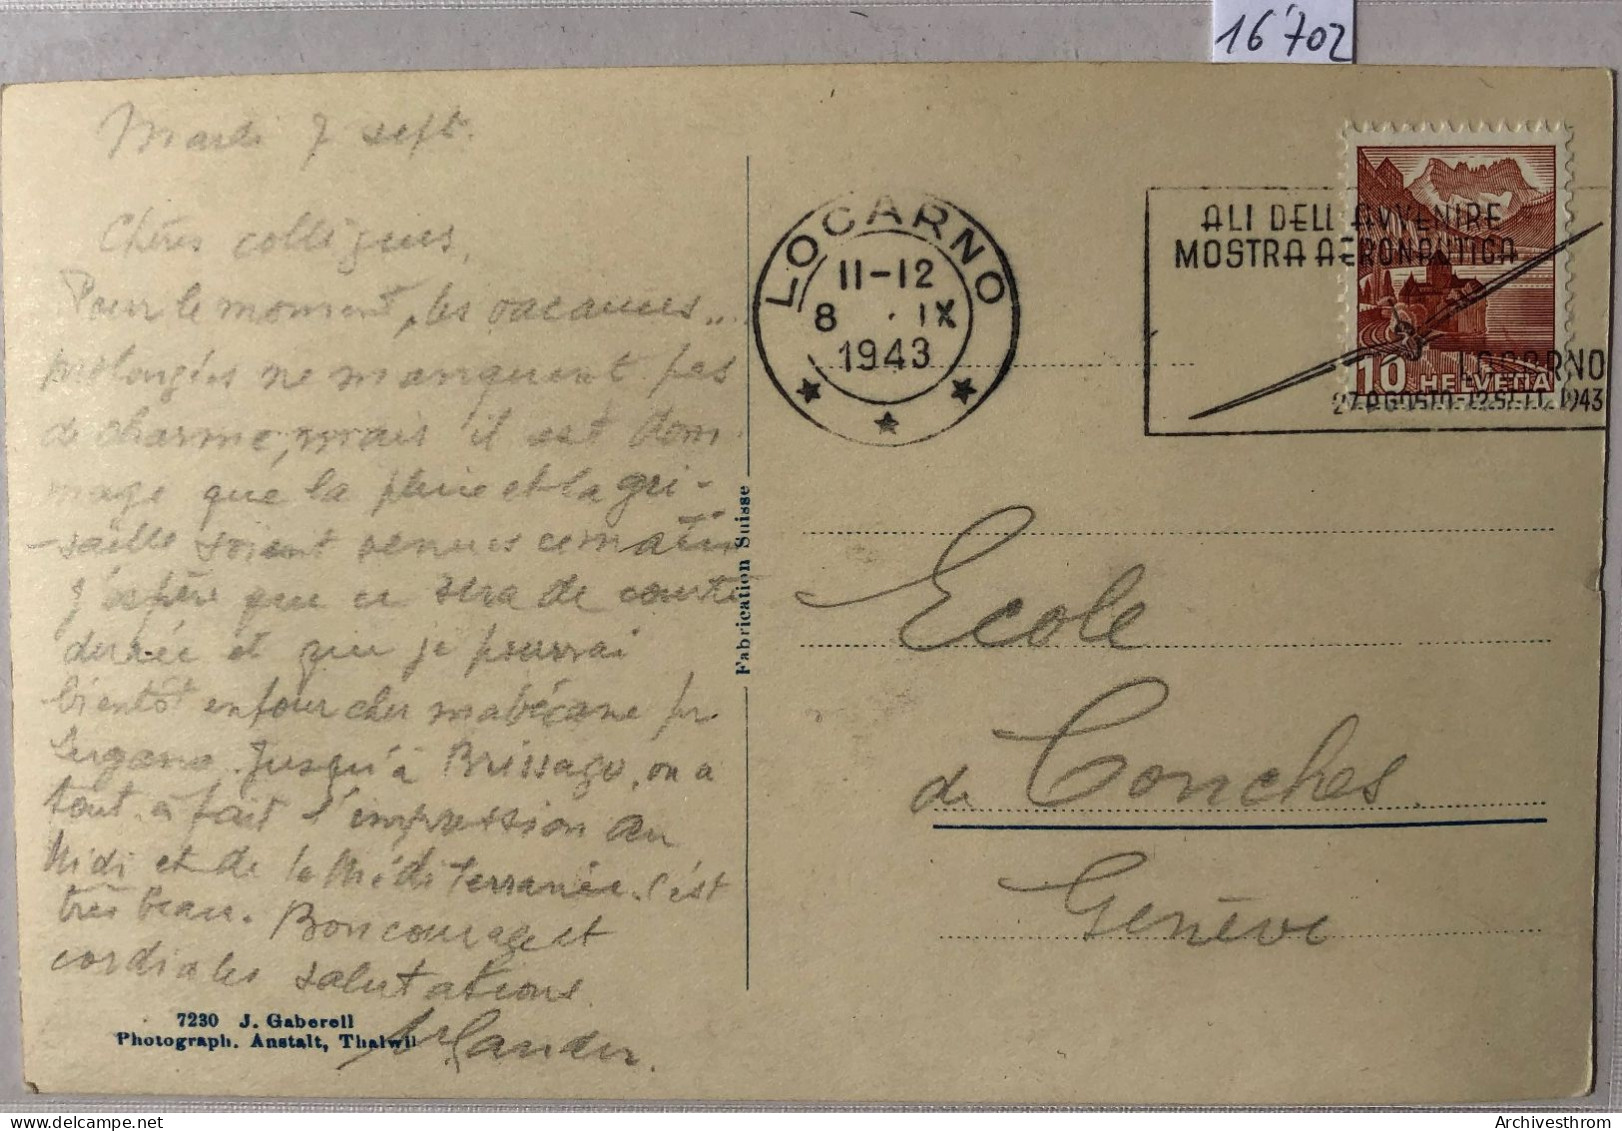 16'702
Mardi 7 sept.
Chères collègues,
Pour le moment, les vacances...
prolongées ne manquent pas
de charme, mais il est dom-
mage que la pluie et la gri-
-saille soient venues ce matin
J'espère que ce sera de courte
durée et que je pourrai
bientôt enfourcher ma bécane pr.
Lugano. Jusqu'à Brissago, on a
tout à fait l'impression du
Midi et de la Méditerranée. C'est
très beau. Bon courage et
cordiales salutations
7230 J. Gaberell
Photograph. Anstalt, Thalwil
Fabrication Suisse
LOCARNO
11-12
8 · IX
1943
ALI DELL AVVENIRE
MOSTRA AERONAUTICA
LOCARNO
27 AGOSTO-12 SETT. 1943
10 HELVETIA
Ecole
de Conches
Genève
Archivesthrom